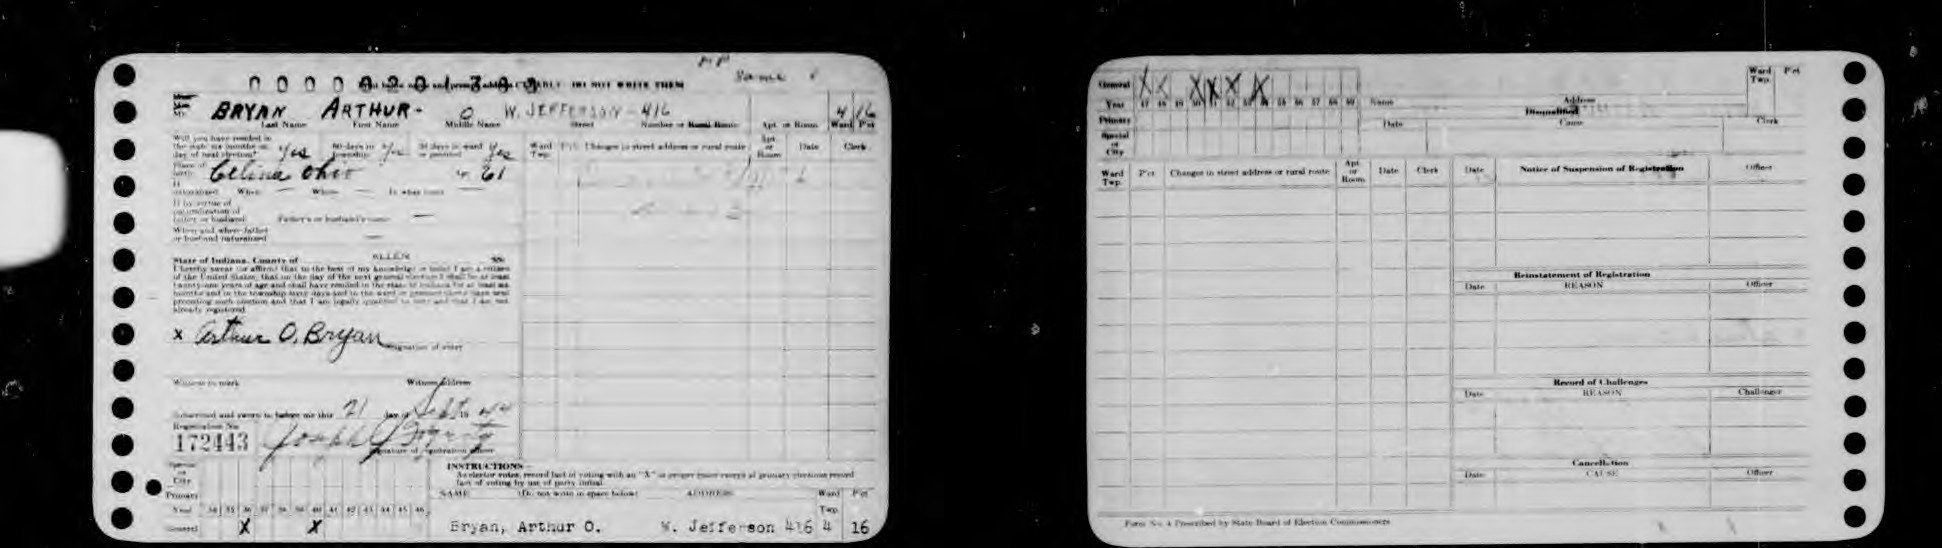 BRYAN ARTHUR- O W. JEFFERSON - 416 4 16
Last Name First Name Middle Name Street Number or Rural Route Apt. or Room Ward P'ct
Will you have resided in
the state six months on 60 days in 30 days in ward
day of next election? Yes township Yes or precinct Yes
Ward Twp. P'ct Changes in street address or rural route Apt. or Room Date Clerk
Celina Ohio 61
naturalized When — Where — In what court —
If by virtue of
naturalization of
father or husband Father's or husband's name —
When and where father
or husband naturalized —
State of Indiana, County of ALLEN SS:
I hereby swear (or affirm) that to the best of my knowledge or belief I am a citizen
of the United States, that on the day of the next general election I shall be at least
twenty-one years of age and shall have resided in the state of Indiana for at least six
already registered.
X Arthur O. Bryan
Signature of voter
Witness to mark Witness address
Subscribed and sworn to before me this 21 day of Sept 19
Registration No.
172443
Signature of registration officer
Special or City
Primary
Year 34 35 36 37 38 39 40 41 42 43 44 45 46
General X X
INSTRUCTIONS
As elector votes, record fact of voting with an "X" in proper space except at primary elections record
fact of voting by use of party initial.
NAME (Do not write in space below) ADDRESS Ward Twp. P'ct
Bryan, Arthur O. W. Jefferson 416 4 16
General X X X X X X
Year 47 48 49 50 51 52 53 54 55 56 57 58 59
Primary
Special or City
Name Address Ward Twp. P'ct
Disqualified
Date Cause Clerk
Ward Twp. P'ct Changes in street address or rural route Apt. or Room Date Clerk
Date Notice of Suspension of Registration Officer
Reinstatement of Registration
Date REASON Officer
Record of Challenges
Date REASON Challenger
Cancellation
Date CAUSE Officer
Form No. 4 Prescribed by State Board of Election Commissioners